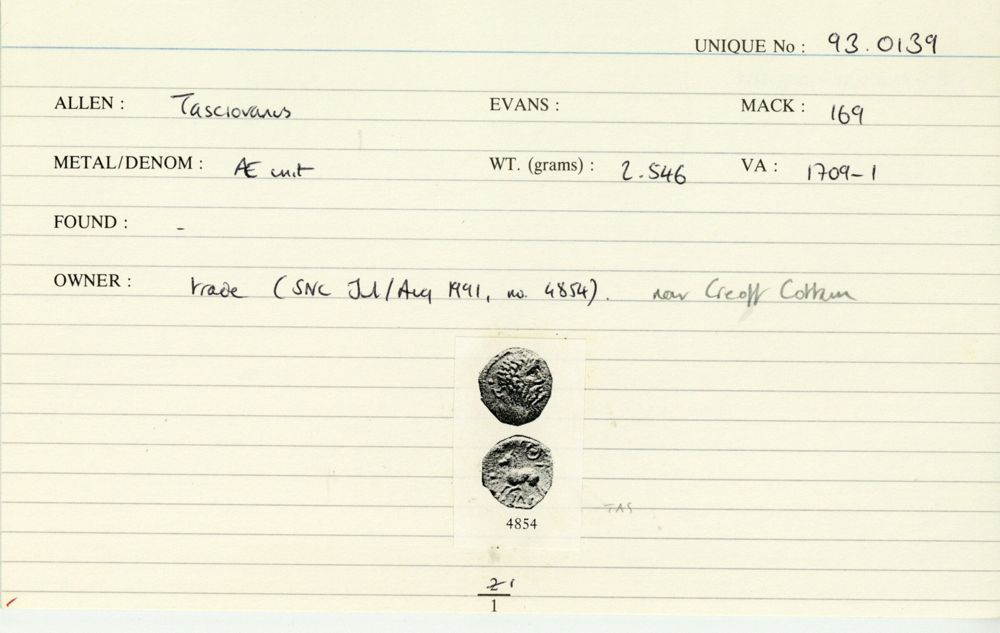 UNIQUE No : 93.0139
ALLEN : Tasciovanus EVANS : MACK : 169
METAL/DENOM : Æ unit WT. (grams) : 2.546 VA : 1709-1
FOUND : -
OWNER : trade (SNC Jul/Aug 1991, no. 4854). now Geoff Cottam
4854
TAS
1